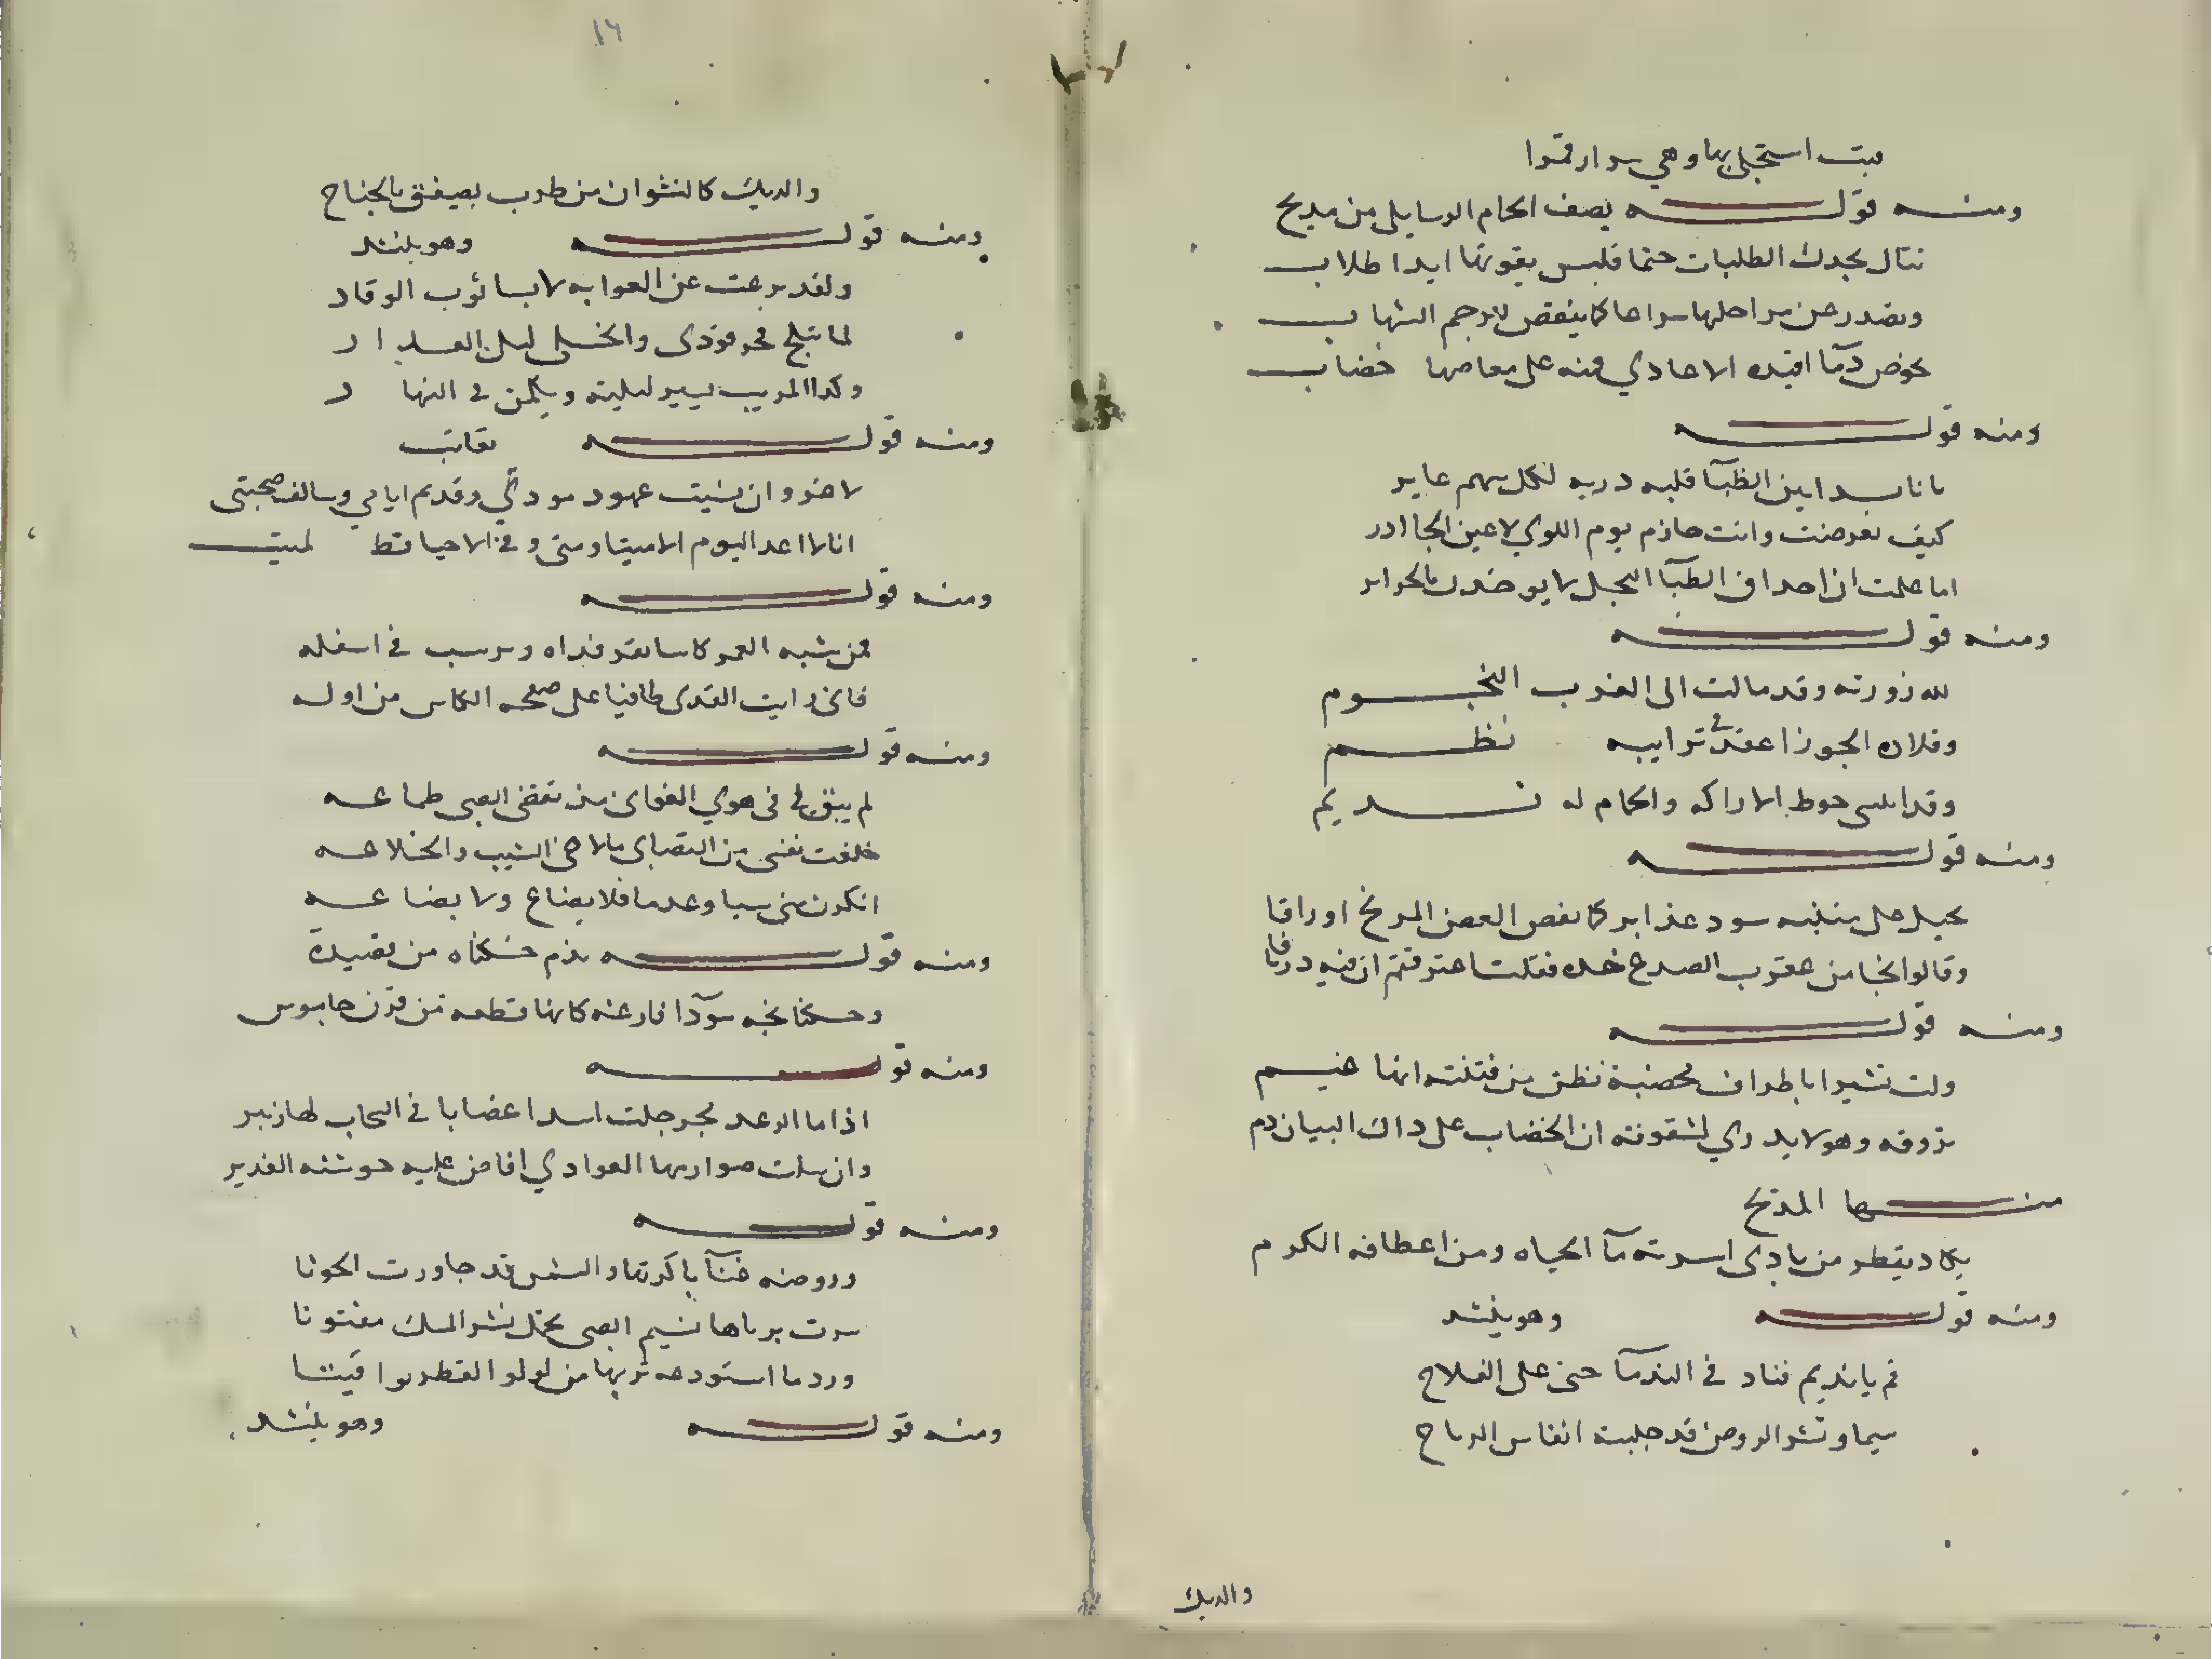 فبت استجلي بها وهي سوار قمرا
ومنه قوله يصف الحمام الرسايلي من مديح
تنال بجدك الطلبات حتما فليس يفوتها ابدا طلاب
وتصدر عن مراحلها سراعا كما ينقض للرجم الشهاب
تخوض دمآ افيده الاعادي فمنه على معاصمها خضاب
ومنه قوله
يا ناشدا بين الظبآ قلبه دريه لكل سهم عاير
كيف تعرضت وانت حازم يوم اللوي لاعين الجاادر
اما علمت ان احداق الظبآ النجل لا يوخدن بالجراير
ومنه قوله
لله زورته وقد مالت الى الغرب النجوم
وقلاده الجوزا عقد في ترايبه نظم
وقد انثنى خوط الاراكه والحمام له نديم
ومنه قوله
يحيل على متنيه سود غداير كما نفض الغصن المرنح اوراقا
وقالوا نجا من عقرب الصدغ خده فقلت اعترفتم ان فيه درياقا
ومنه قوله
ولت تشير باطراف مخضبة تظن من فتنت انها عنم
تروقه وهو لا يدري لشقوته ان الخضاب على داك البيان دم
منها المديح
يكاد يقطر من بادى اسرته مآ الحياه ومن اعطافه الكرم
ومنه قوله وهو ينشد
قم يا نديم فناد في الندمآ حى على الفلاح
سيما ونشر الروض قد جلبته انفاس الرياح
والديك
١٦
والديك كالنشوان من طرب يصفق بالجناح
ومنه قوله وهو ينشد
ولقد نزعت عن الغوايه لابسا ثوب الوقار
لما تبلج فجر فودى وانجلى ليل العدار
وكدا المريب يسير ليلته ويكمن في النهار
ومنه قوله يعاتب
لا غرو ان نسيت عهود مودتي وقديم ايامي وسالف صحبتى
انا لا اعد اليوم الا ميتا ومتى وفي الاحيا قط لميت
ومنه قوله
فمن شبه العمر كاسا يقر قداه ويرسب في اسفله
فانى رايت القدى طافيا على صفحه الكاس من اوله
ومنه قوله
لم يبق لي في هوي الغوانى من تقضى الصبى طماعه
خلفت نفسى من التصابى بالاحي الشيب والخلاعه
اتكون منى سبا وعدما فلا بضاع ولا بضاعه
ومنه قوله يذم خشكناه من قصيدة
وخشكنانجه سودآ فارغه كانها قطعه من قرن جاموس
ومنه قوله
اذا ما الرعد زمجر خلت اسدا غضابا في السحاب لها زئير
وان سلت صوارمها الغوادي افاض عليه جوشنه الغدير
ومنه قوله
وروضه غنآ باكرتها والشمس قد جاورت الحوتا
سرت برياها نسيم الصبى تخال نشر المسك مفتوتا
ورد ما استودعه تربها من لولو القطر يواقيتا
ومنه قوله وهو ينشد